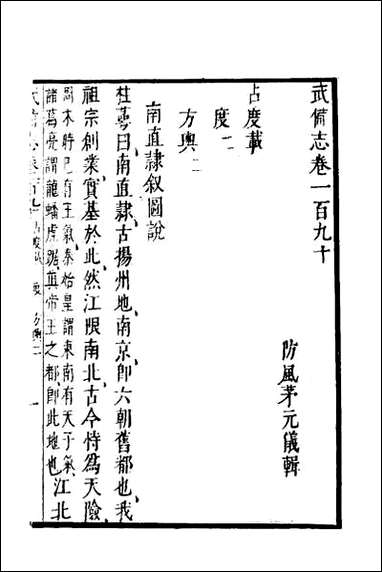 武備志卷一百九十
防風茅元儀輯
占度載
度二
方輿二
南直隷叙圖說
桂萼曰南直隷古揚州地南京即六朝舊都也我
祖宗創業實基於此然江限南北古今恃爲天險
周末時已有王氣秦始皇謂東南有天子氣
諸葛亮謂龍蟠虎踞真帝王之都即此地也江北
武備志卷一百九十 占度載 度 方輿二 一